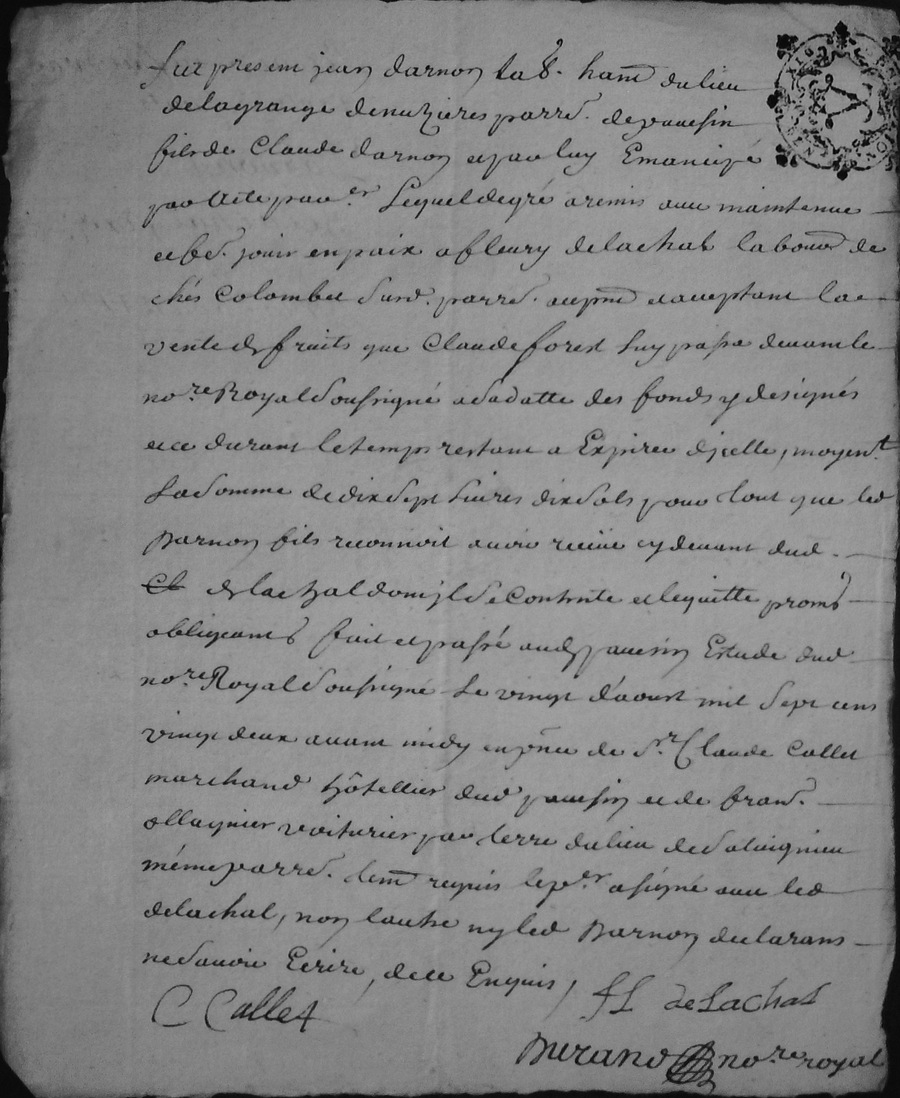 fut present jean darnon lab.r ham.t du lieu
de lagrange denuzieres parr.e de pauesin
fils de Claude darnon et par luy Emancipé
par Acte pau.er Lequel de gré a remis auec maintenue
et de jouir en paix a fleury delachal labour.r de
chés Colombet sur d. parr.e au pnt et acceptant la
vente des fruits que Claude forest luy passa deuant le
no.re Royal Soussigné a sa datte des fonds y designés
et ce durant le temps restant a Expirer dicelle, moyen.t
La Somme de dix Sept Liures dix Sols pour tout que led
Darnon fils reconnoit auoir receüe cy deuant dud
delachal dont jl Se Contente et le quitte prom.s
obligeants fait et passé aud pauesin Estude dud
no.re Royal Soussigné Le vingt d'aoust mil Sept cens
vingt deux auant midy en pñce de S.r Claude Collet
marchand hôtellier dud pauesin et de fran.s
ollagnier voiturier par terre du lieu de
même parr.e tem requis le p.er a signé auec led
delachal, non lautre ny led Darnon declarans
ne Sauoir Ecrire, de ce Enquis,
C Collet
fL deLachal
Durand no.re royal